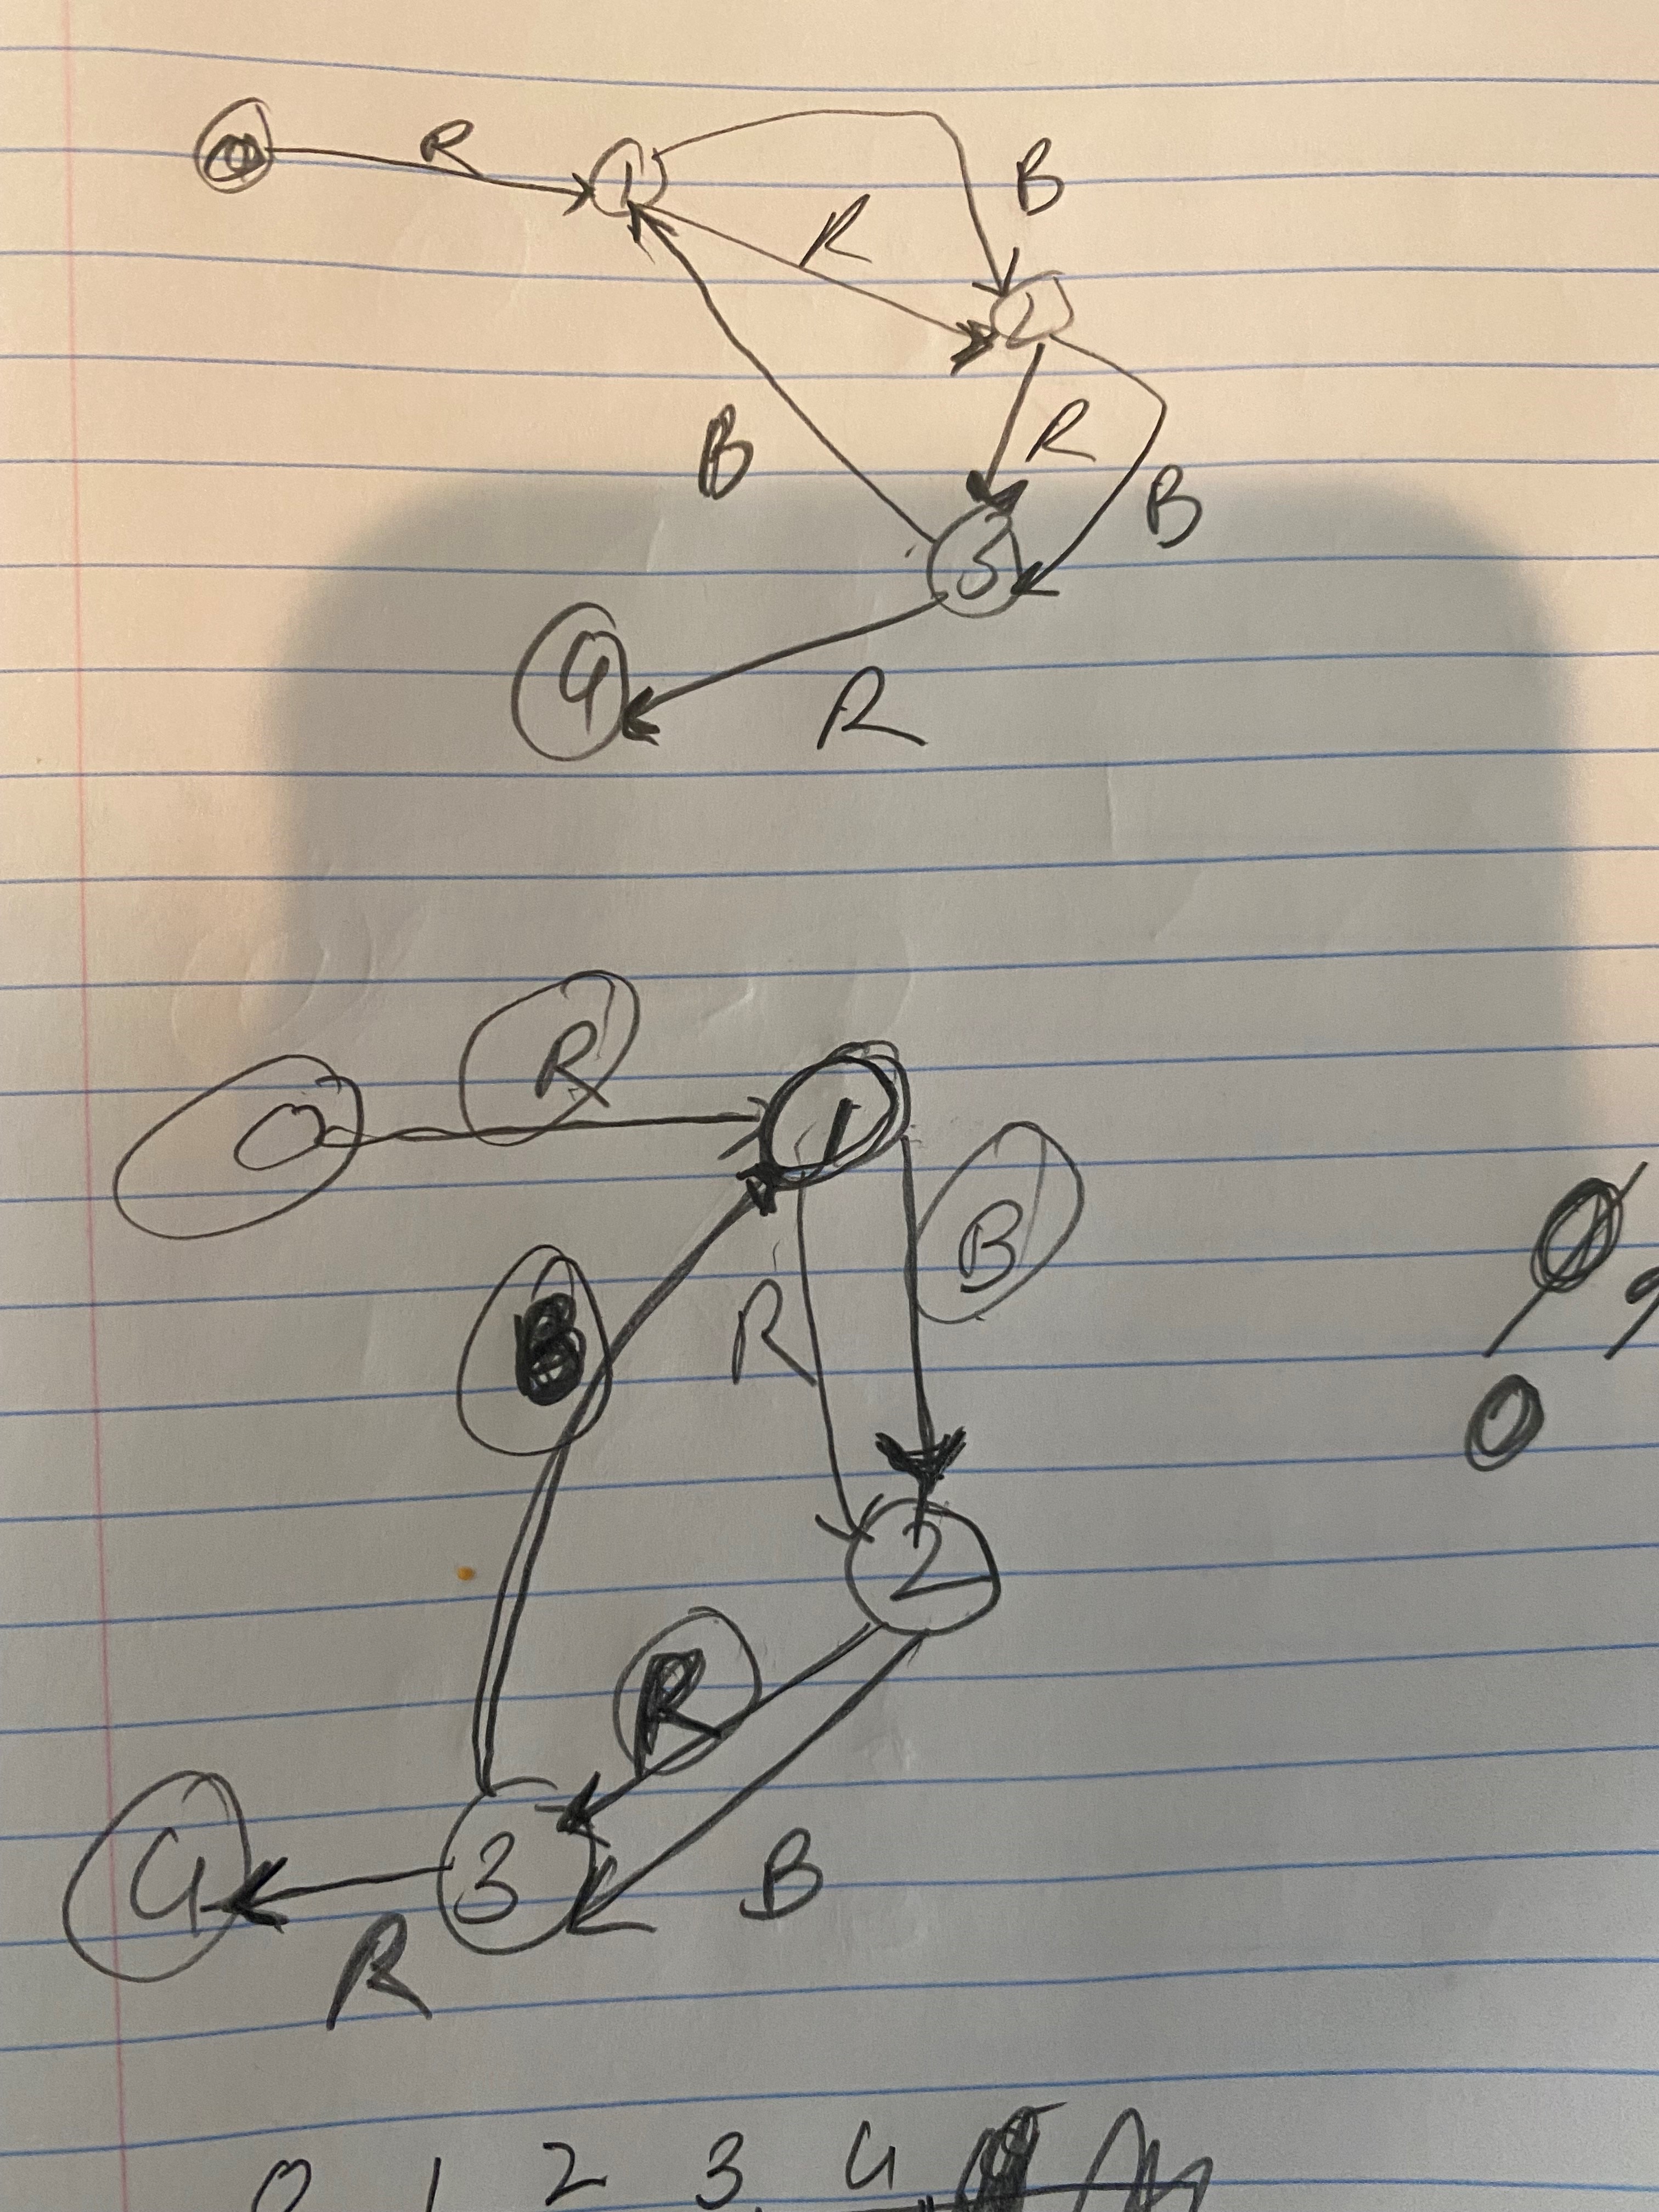 0 R 1 B
R 2
B R B
3
4 R
0 R 1
B R B
2
R
4 3 B
R
0 1 2 3 4